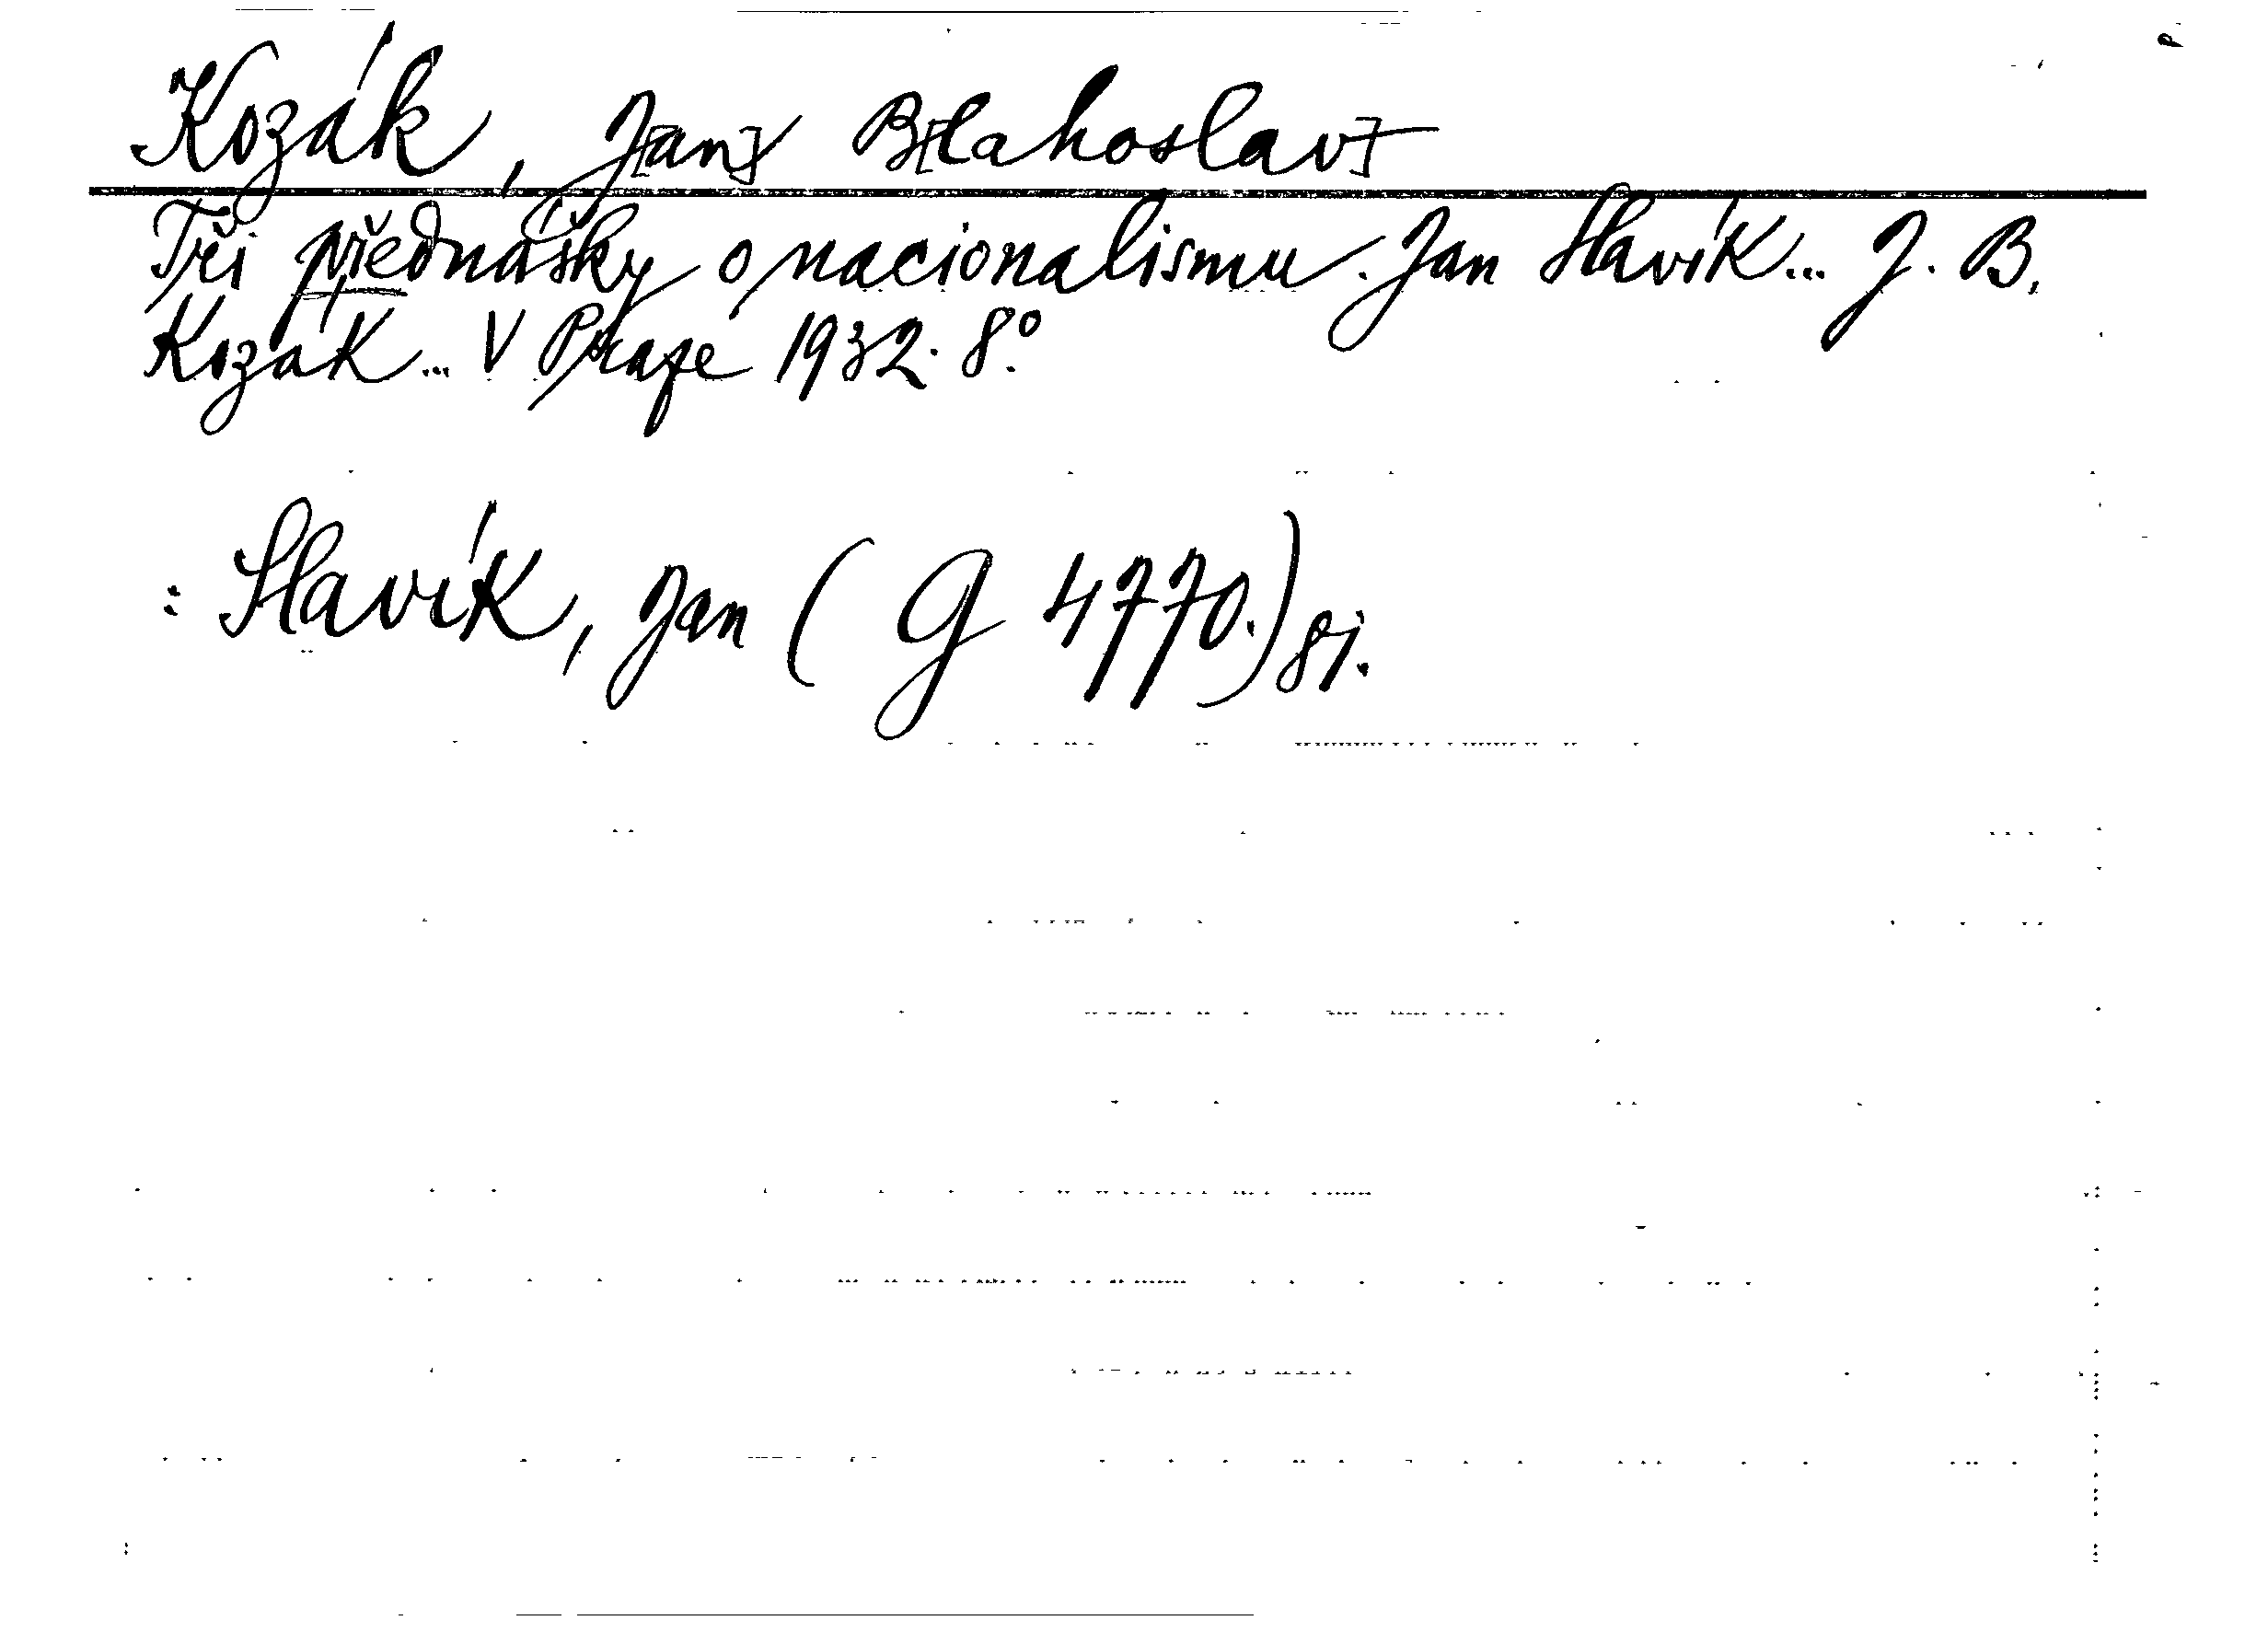 Kozák, J[an] B[lahoslav]
Tři přednášky o nacionalismu. Jan Slavík... J. B.
Kozák... V Praze 1932. 8°.
: Slavík, Jan ( G 4770.)